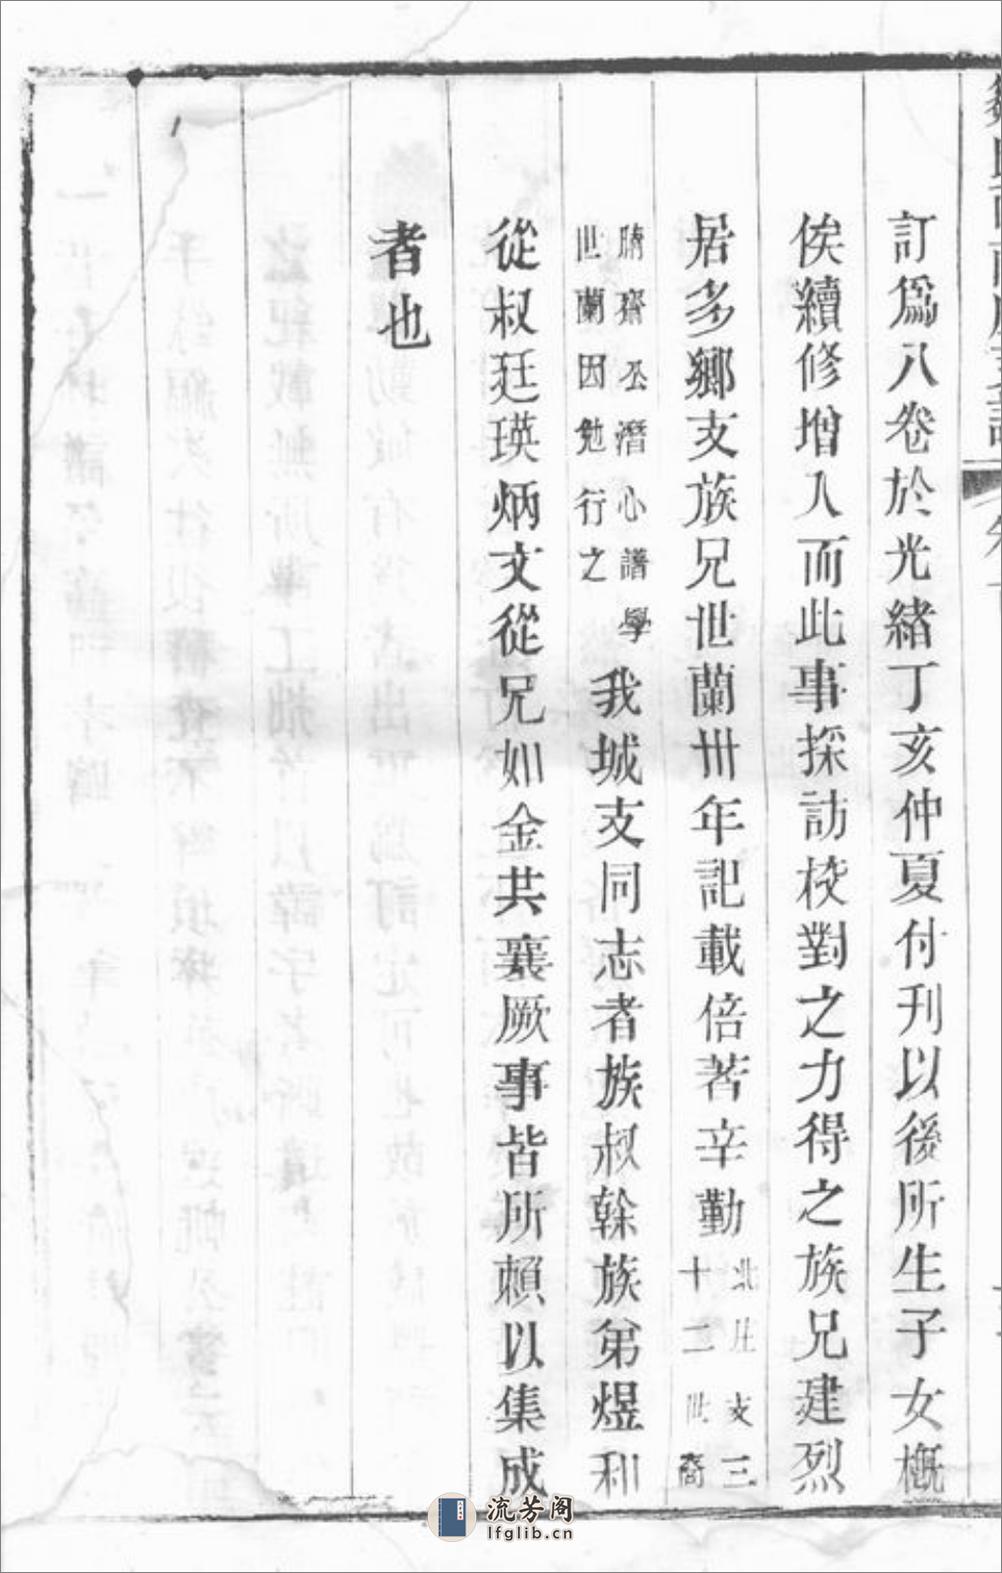 訂爲八卷於光緒丁亥仲夏付刊以後所生子女概
俟續修增入而此事探訪校對之力得之族兄建烈
居多鄉支族兄世蘭卅年記載倍著辛勤北庄支三十二世裔
晴齋公潛心譜學世蘭因勉行之我城支同志者族叔榦族弟煜利
從叔廷瑛炳文從兄如金共襄厥事皆所賴以集成
者也
流芳阁
lfglib.cn